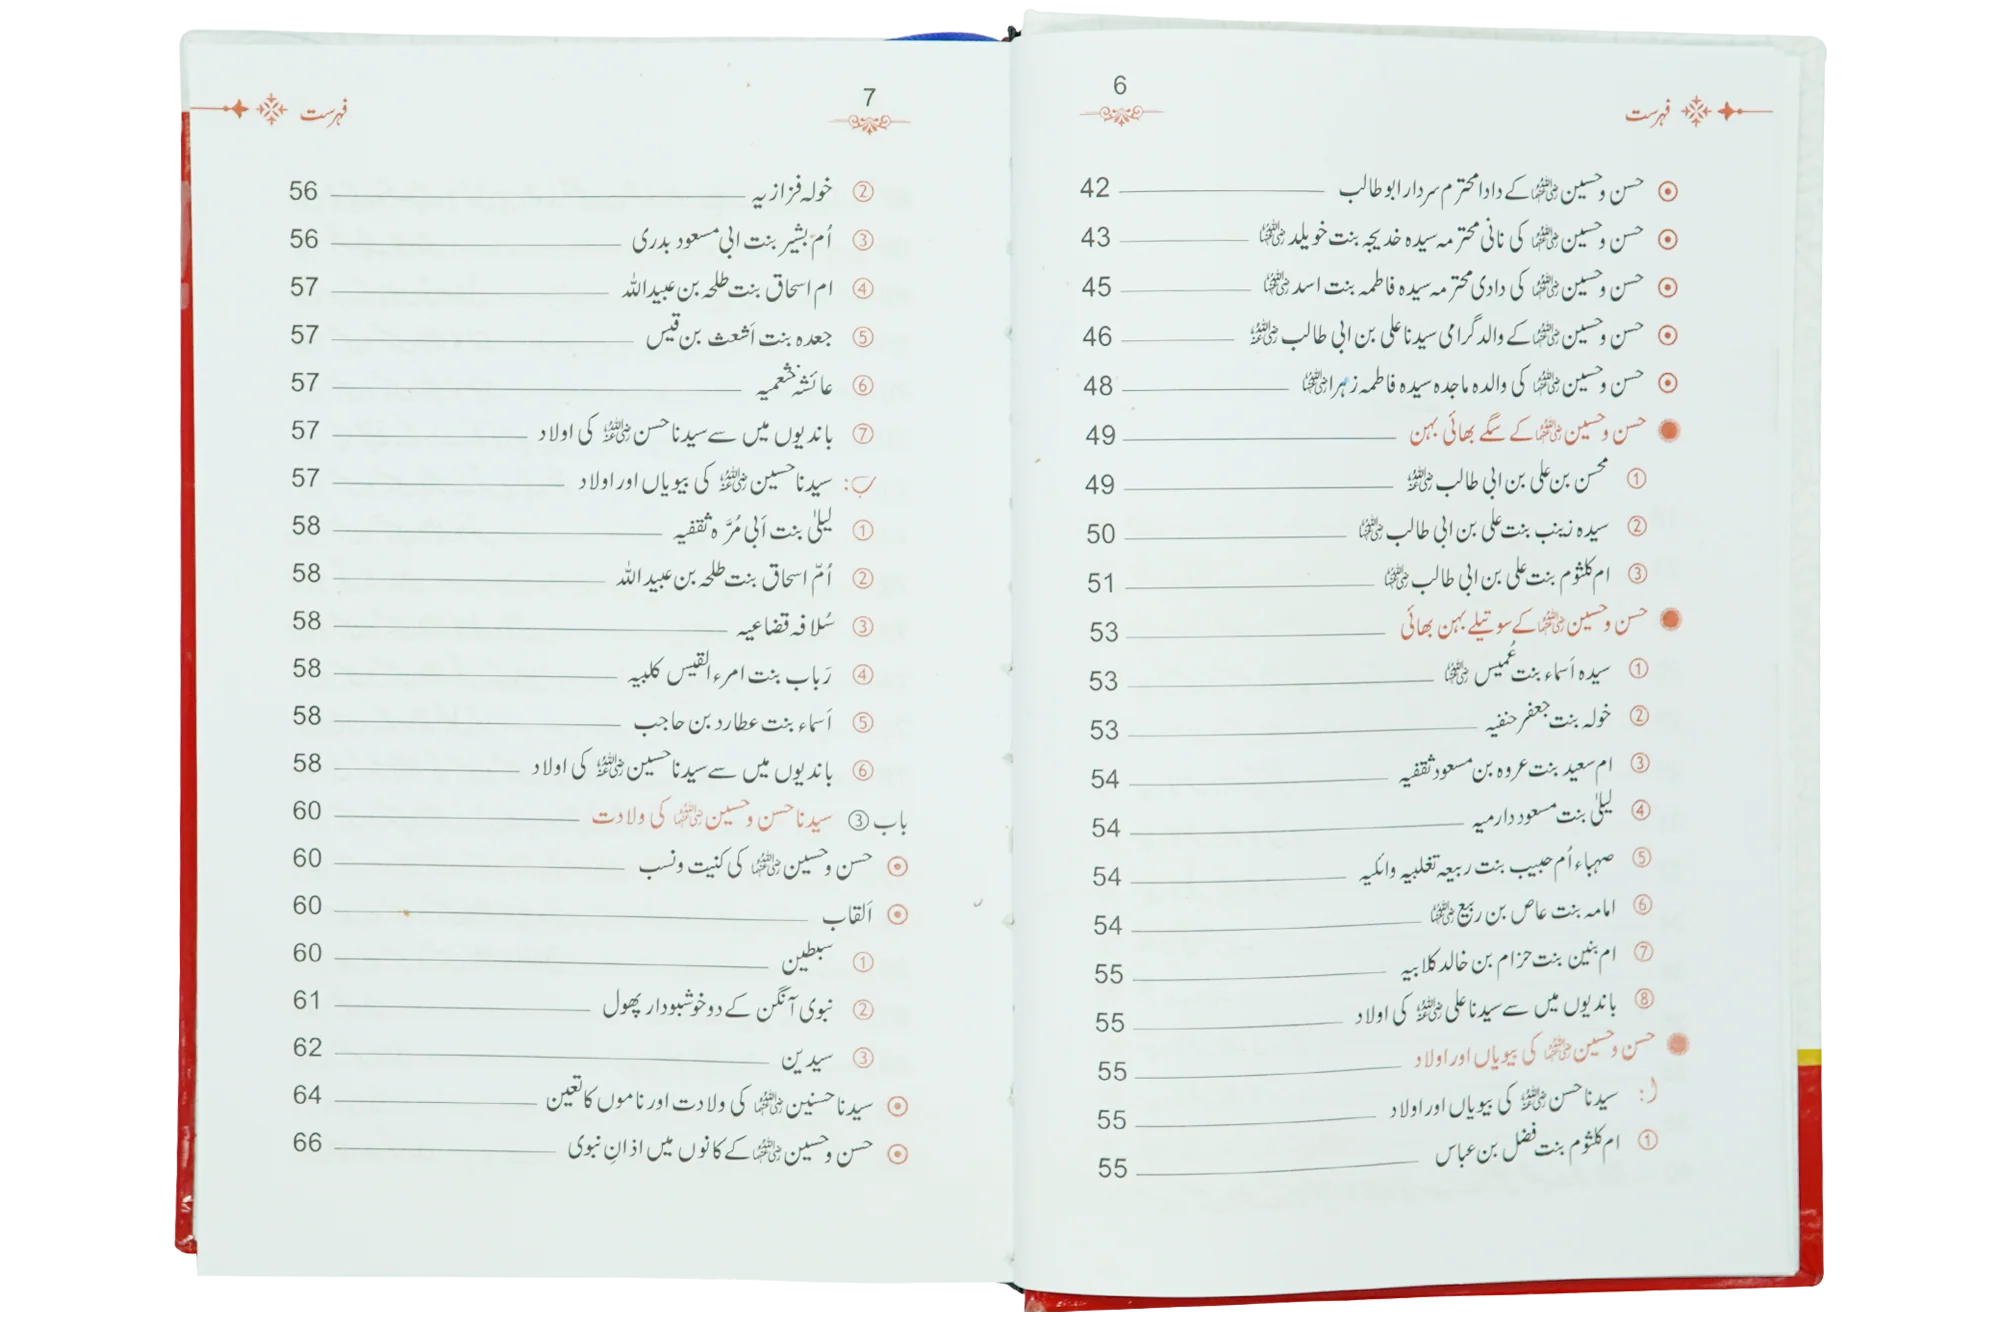 فہرست
6
حسن و حسین رضی اللہ عنہما کے دادا محترم سردار ابو طالب 42
حسن و حسین رضی اللہ عنہما کی نانی محترمہ سیدہ خدیجہ بنت خویلد رضی اللہ عنہا 43
حسن و حسین رضی اللہ عنہما کی دادی محترمہ سیدہ فاطمہ بنت اسد رضی اللہ عنہا 45
حسن و حسین رضی اللہ عنہما کے والد گرامی سیدنا علی بن ابی طالب رضی اللہ عنہ 46
حسن و حسین رضی اللہ عنہما کی والدہ ماجدہ سیدہ فاطمہ زہرا رضی اللہ عنہا 48
حسن و حسین رضی اللہ عنہما کے سگے بھائی بہن 49
① محسن بن علی بن ابی طالب رضی اللہ عنہ 49
② سیدہ زینب بنت علی بن ابی طالب رضی اللہ عنہا 50
③ ام کلثوم بنت علی بن ابی طالب رضی اللہ عنہا 51
حسن و حسین رضی اللہ عنہما کے سوتیلے بہن بھائی 53
① سیدہ اَسماء بنت عُمیس رضی اللہ عنہا 53
② خولہ بنت جعفر حنفیہ 53
③ ام سعید بنت عروہ بن مسعود ثقفیہ 54
④ لیلیٰ بنت مسعود دارمیہ 54
⑤ صہباء اُم حبیب بنت ربیعہ تغلبیہ وائلیہ 54
⑥ امامہ بنت عاص بن ربیع رضی اللہ عنہا 54
⑦ ام بنین بنت حزام بن خالد کلابیہ 55
⑧ باندیوں میں سے سیدنا علی رضی اللہ عنہ کی اولاد 55
حسن و حسین رضی اللہ عنہما کی بیویاں اور اولاد 55
(: سیدنا حسن رضی اللہ عنہ کی بیویاں اور اولاد 55
① ام کلثوم بنت فضل بن عباس 55
7
فہرست
② خولہ فزازیہ 56
③ اُم بشیر بنت ابی مسعود بدری 56
④ ام اسحاق بنت طلحہ بن عبید اللہ 57
⑤ جعدہ بنت اَشعث بن قیس 57
⑥ عائشہ خثعمیہ 57
⑦ باندیوں میں سے سیدنا حسن رضی اللہ عنہ کی اولاد 57
ب: سیدنا حسین رضی اللہ عنہ کی بیویاں اور اولاد 57
① لیلیٰ بنت اَبی مُرَّہ ثقفیہ 58
② اُمّ اسحاق بنت طلحہ بن عبید اللہ 58
③ سُلافہ قضاعیہ 58
④ رَباب بنت امرء القیس کلبیہ 58
⑤ اَسماء بنت عطارد بن حاجب 58
⑥ باندیوں میں سے سیدنا حسین رضی اللہ عنہ کی اولاد 58
باب ③ سیدنا حسن و حسین رضی اللہ عنہما کی ولادت 60
حسن و حسین رضی اللہ عنہما کی کنیت و نسب 60
اَلقاب 60
① سبطین 60
② نبوی آنگن کے دو خوشبودار پھول 61
③ سیدین 62
سیدنا حسنین رضی اللہ عنہما کی ولادت اور ناموں کا تعین 64
حسن و حسین رضی اللہ عنہما کے کانوں میں اذانِ نبوی 66